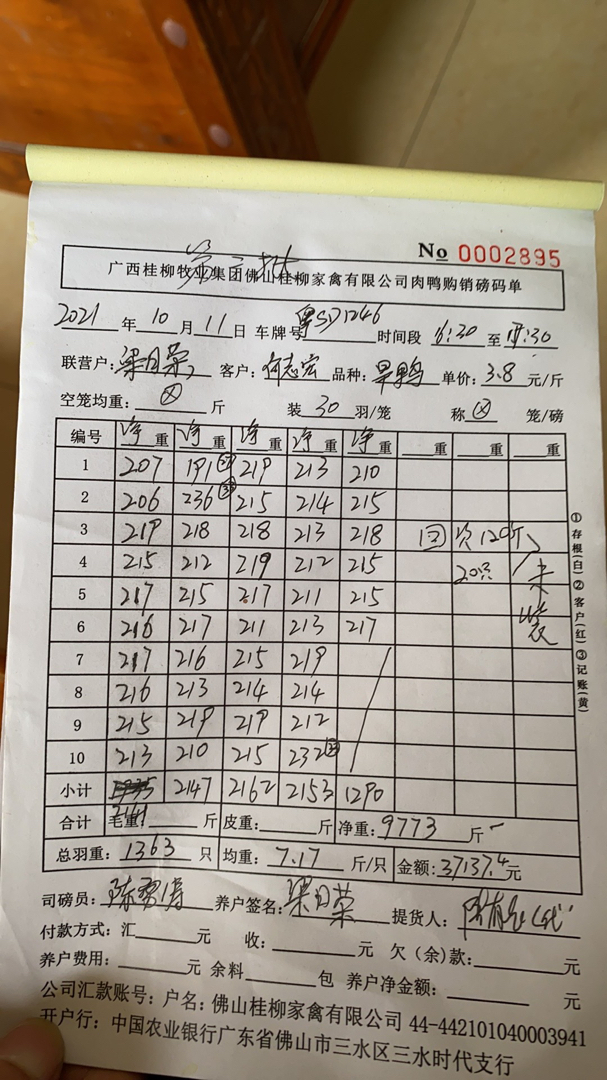 No 0002895
第二批
广西桂柳牧业集团佛山桂柳家禽有限公司肉鸭购销磅码单
2021 年 10 月 11 日 车牌号 粤SD1246 时间段 6:30 至 :30
联营户: 梁日荣 客户: 何志宏 品种: 旱鸭 单价: 3.8 元/斤
空笼均重: 斤 装 30 羽/笼 称 笼/磅
编号 净重 净重 净重 净重 净重 重 重 重
1 207 191 219 213 210
2 206 236 215 214 215
3 219 218 218 213 218 回 120斤
4 215 212 219 212 215 20只
5 217 215 217 211 215
6 216 217 211 213 217
7 217 216 215 219
8 216 213 214 214
9 215 219 219 212
10 213 210 215 232
小计 2147 2162 2153 1290
2141
合计 毛重: 斤 皮重: 斤 净重: 9773 斤
总羽重: 1363 只 均重: 7.17 斤/只 金额: 37137.4 元
司磅员: 养户签名: 梁日荣 提货人:
付款方式: 汇 元 收: 元 欠(余)款: 元
养户费用: 元 余料 包 养户净金额: 元
公司汇款账号: 户名: 佛山桂柳家禽有限公司 44-442101040003941
开户行: 中国农业银行广东省佛山市三水区三水时代支行
①存根(白)②客户(红)③记账(黄)